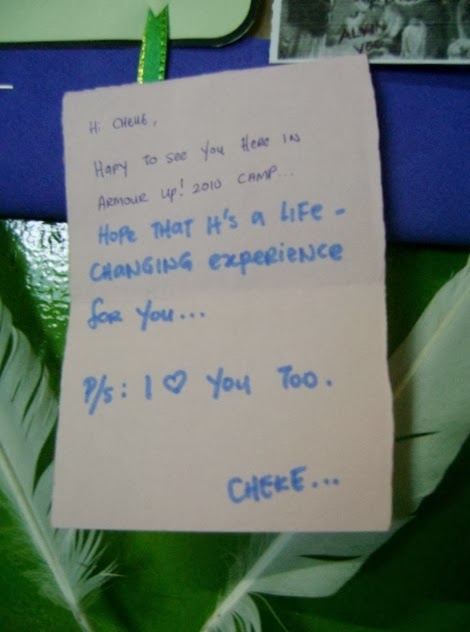 ALVIN
Hi CHEKE,
HAPY TO SEE YOU HERE IN
ARMOUR UP! 2010 CAMP...
HOPE THAT it's a LiFe -
CHANGING experience
for you...
P/s: I ♡ You Too.
CHEKE...